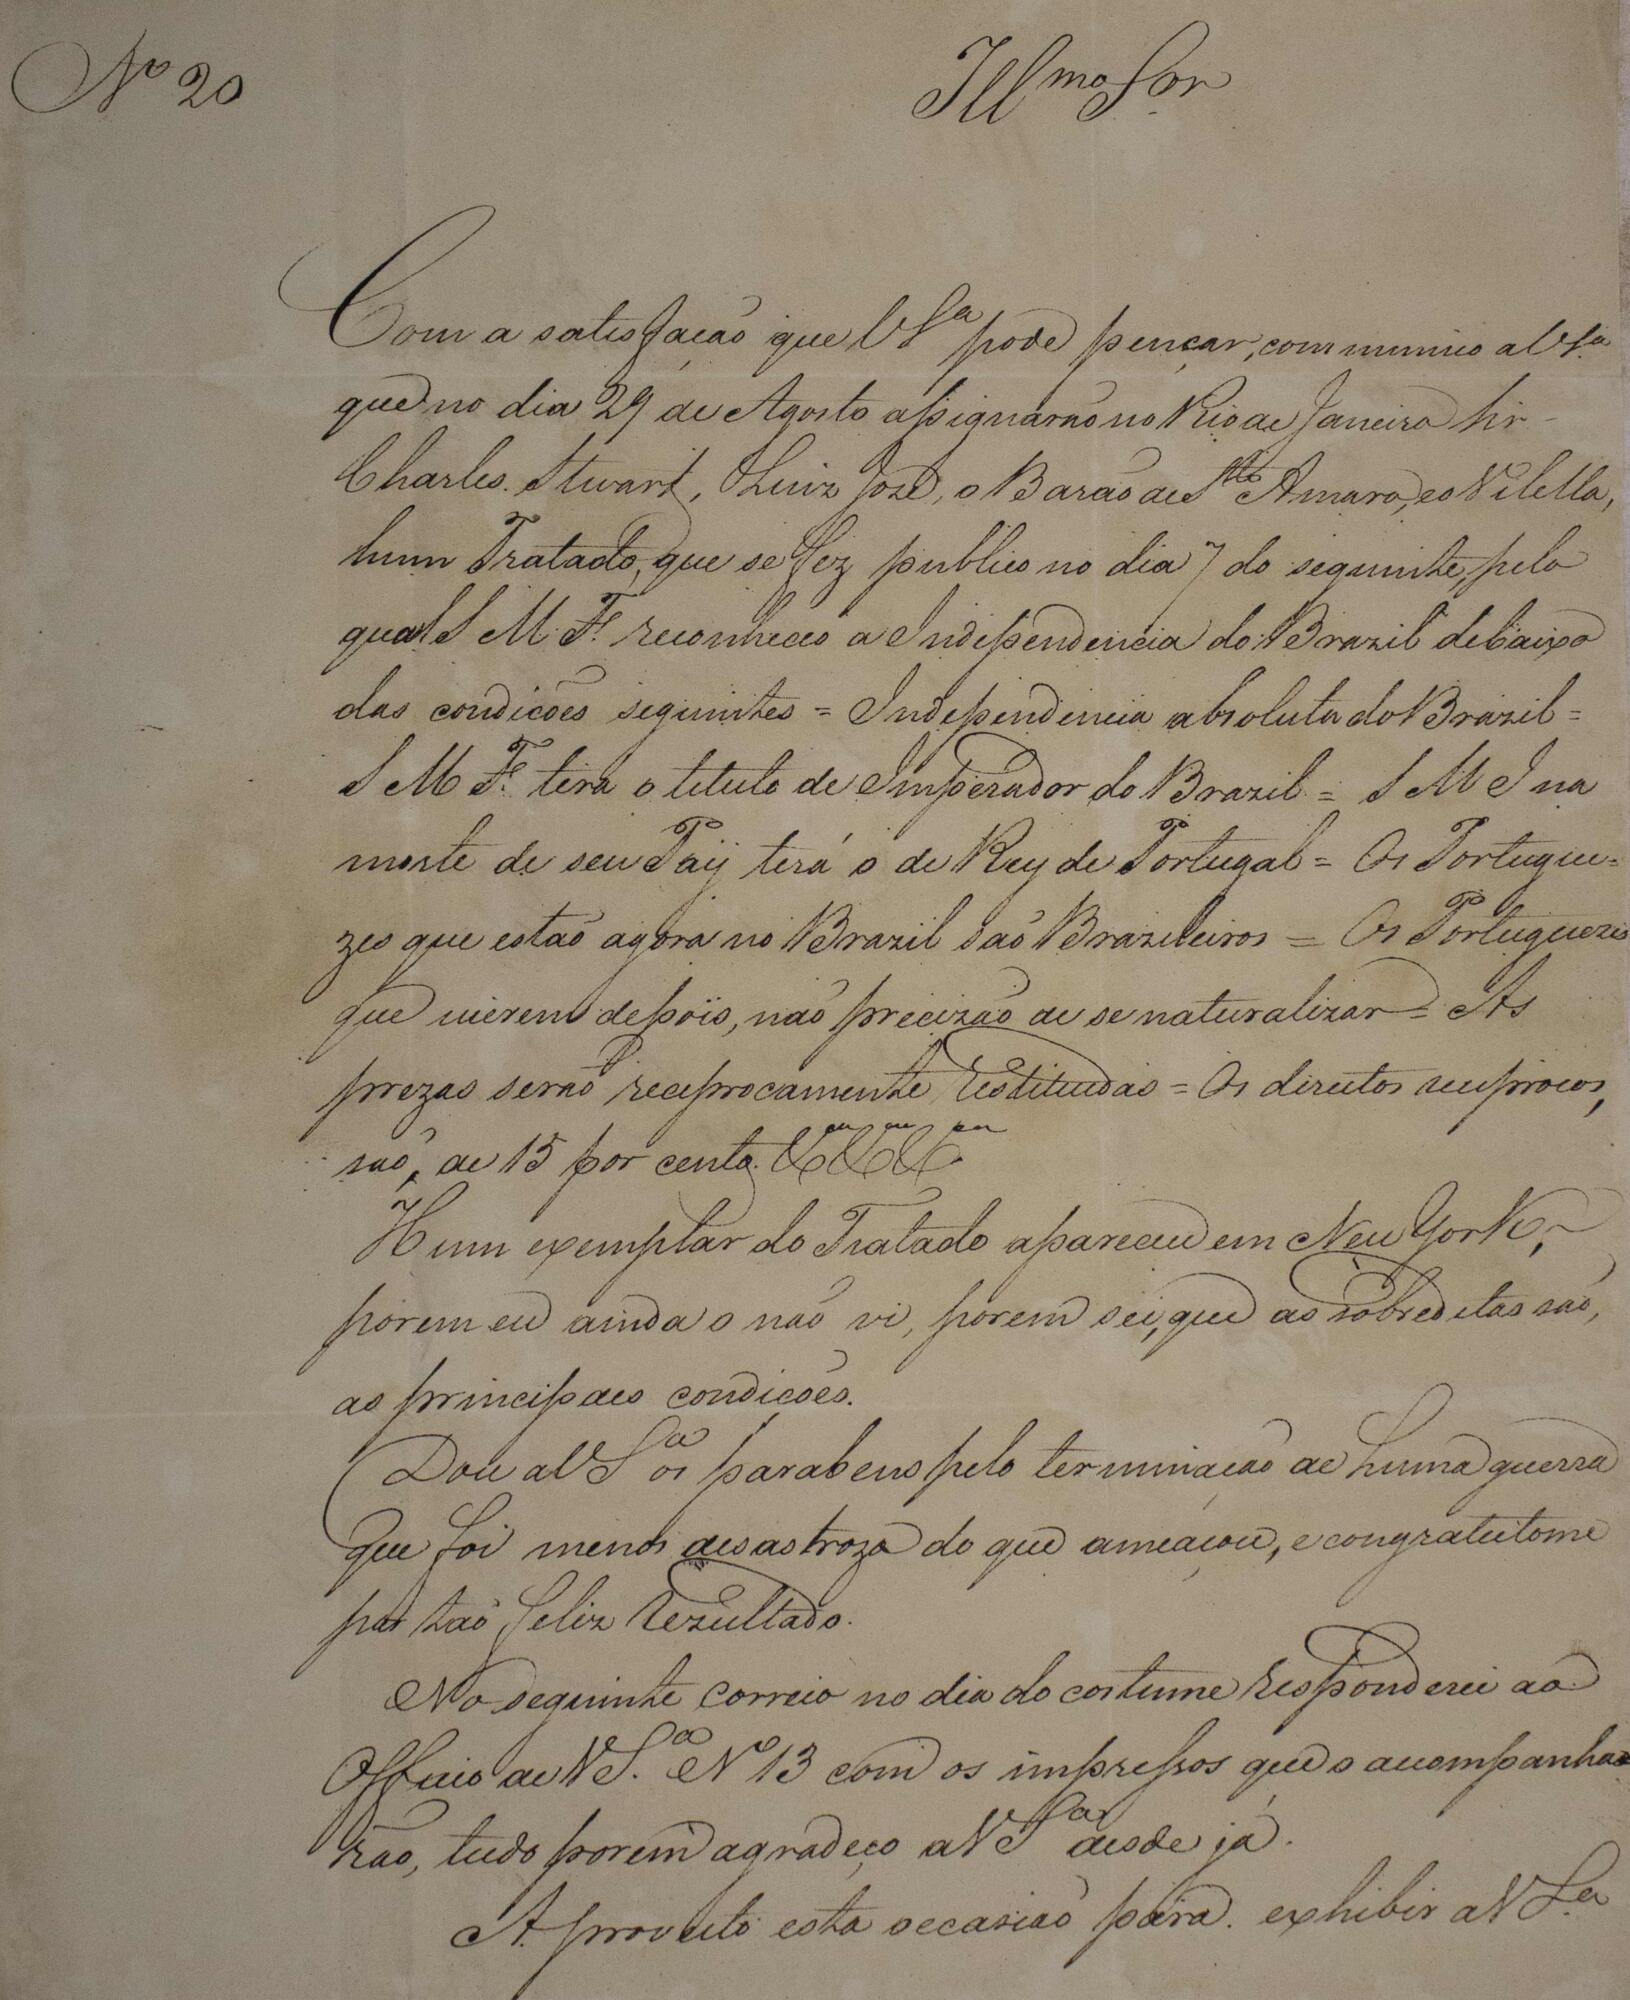 Nº 20
Illmo Sor
Com a satisfação que V Sa pode pençar, communico a V Sa
que no dia 29 de Agosto assignarão no Rio de Janeiro Sir
Charles Stuart, Luiz José, o Barão de Sto Amaro, e o Vilella,
hum Tratado, que se fez publico no dia 7 do seguinte, pelo
qual S M. F. reconheceo a Independencia do Brazil debaixo
das condicões seguintes = Independencia absoluta do Brazil =
S M F. terá o titulo de Imperador do Brazil = S M I na
morte de seu Pay terá o de Rey de Portugal = Os Portugue=
zes que estão agora no Brazil são Brazileiros = Os Portuguezes
que vierem depois, não precizão de se naturalizar = As
prezas serão reciprocamente restituidas = Os direitos reciprocos,
são, de 15 por cento. &ca &ca &ca
Hum exemplar do Tratado apareceu em New York,
porem eu ainda o não vi, porem sei, que as sobreditas são,
as principaes condicões.
Dou a V Sa os parabens pelo terminação de huma guerra
que foi menos desastroza do que ameaçou, e congratulome
por tão feliz rezultado.
No seguinte correio no dia do costume responderei ao
Officio de V S.a Nº 13 com os impressos que o acompanha
rão, tudo porem agradeço a V Sa desde já.
Aproveito esta occasião para exhibir a V S.a